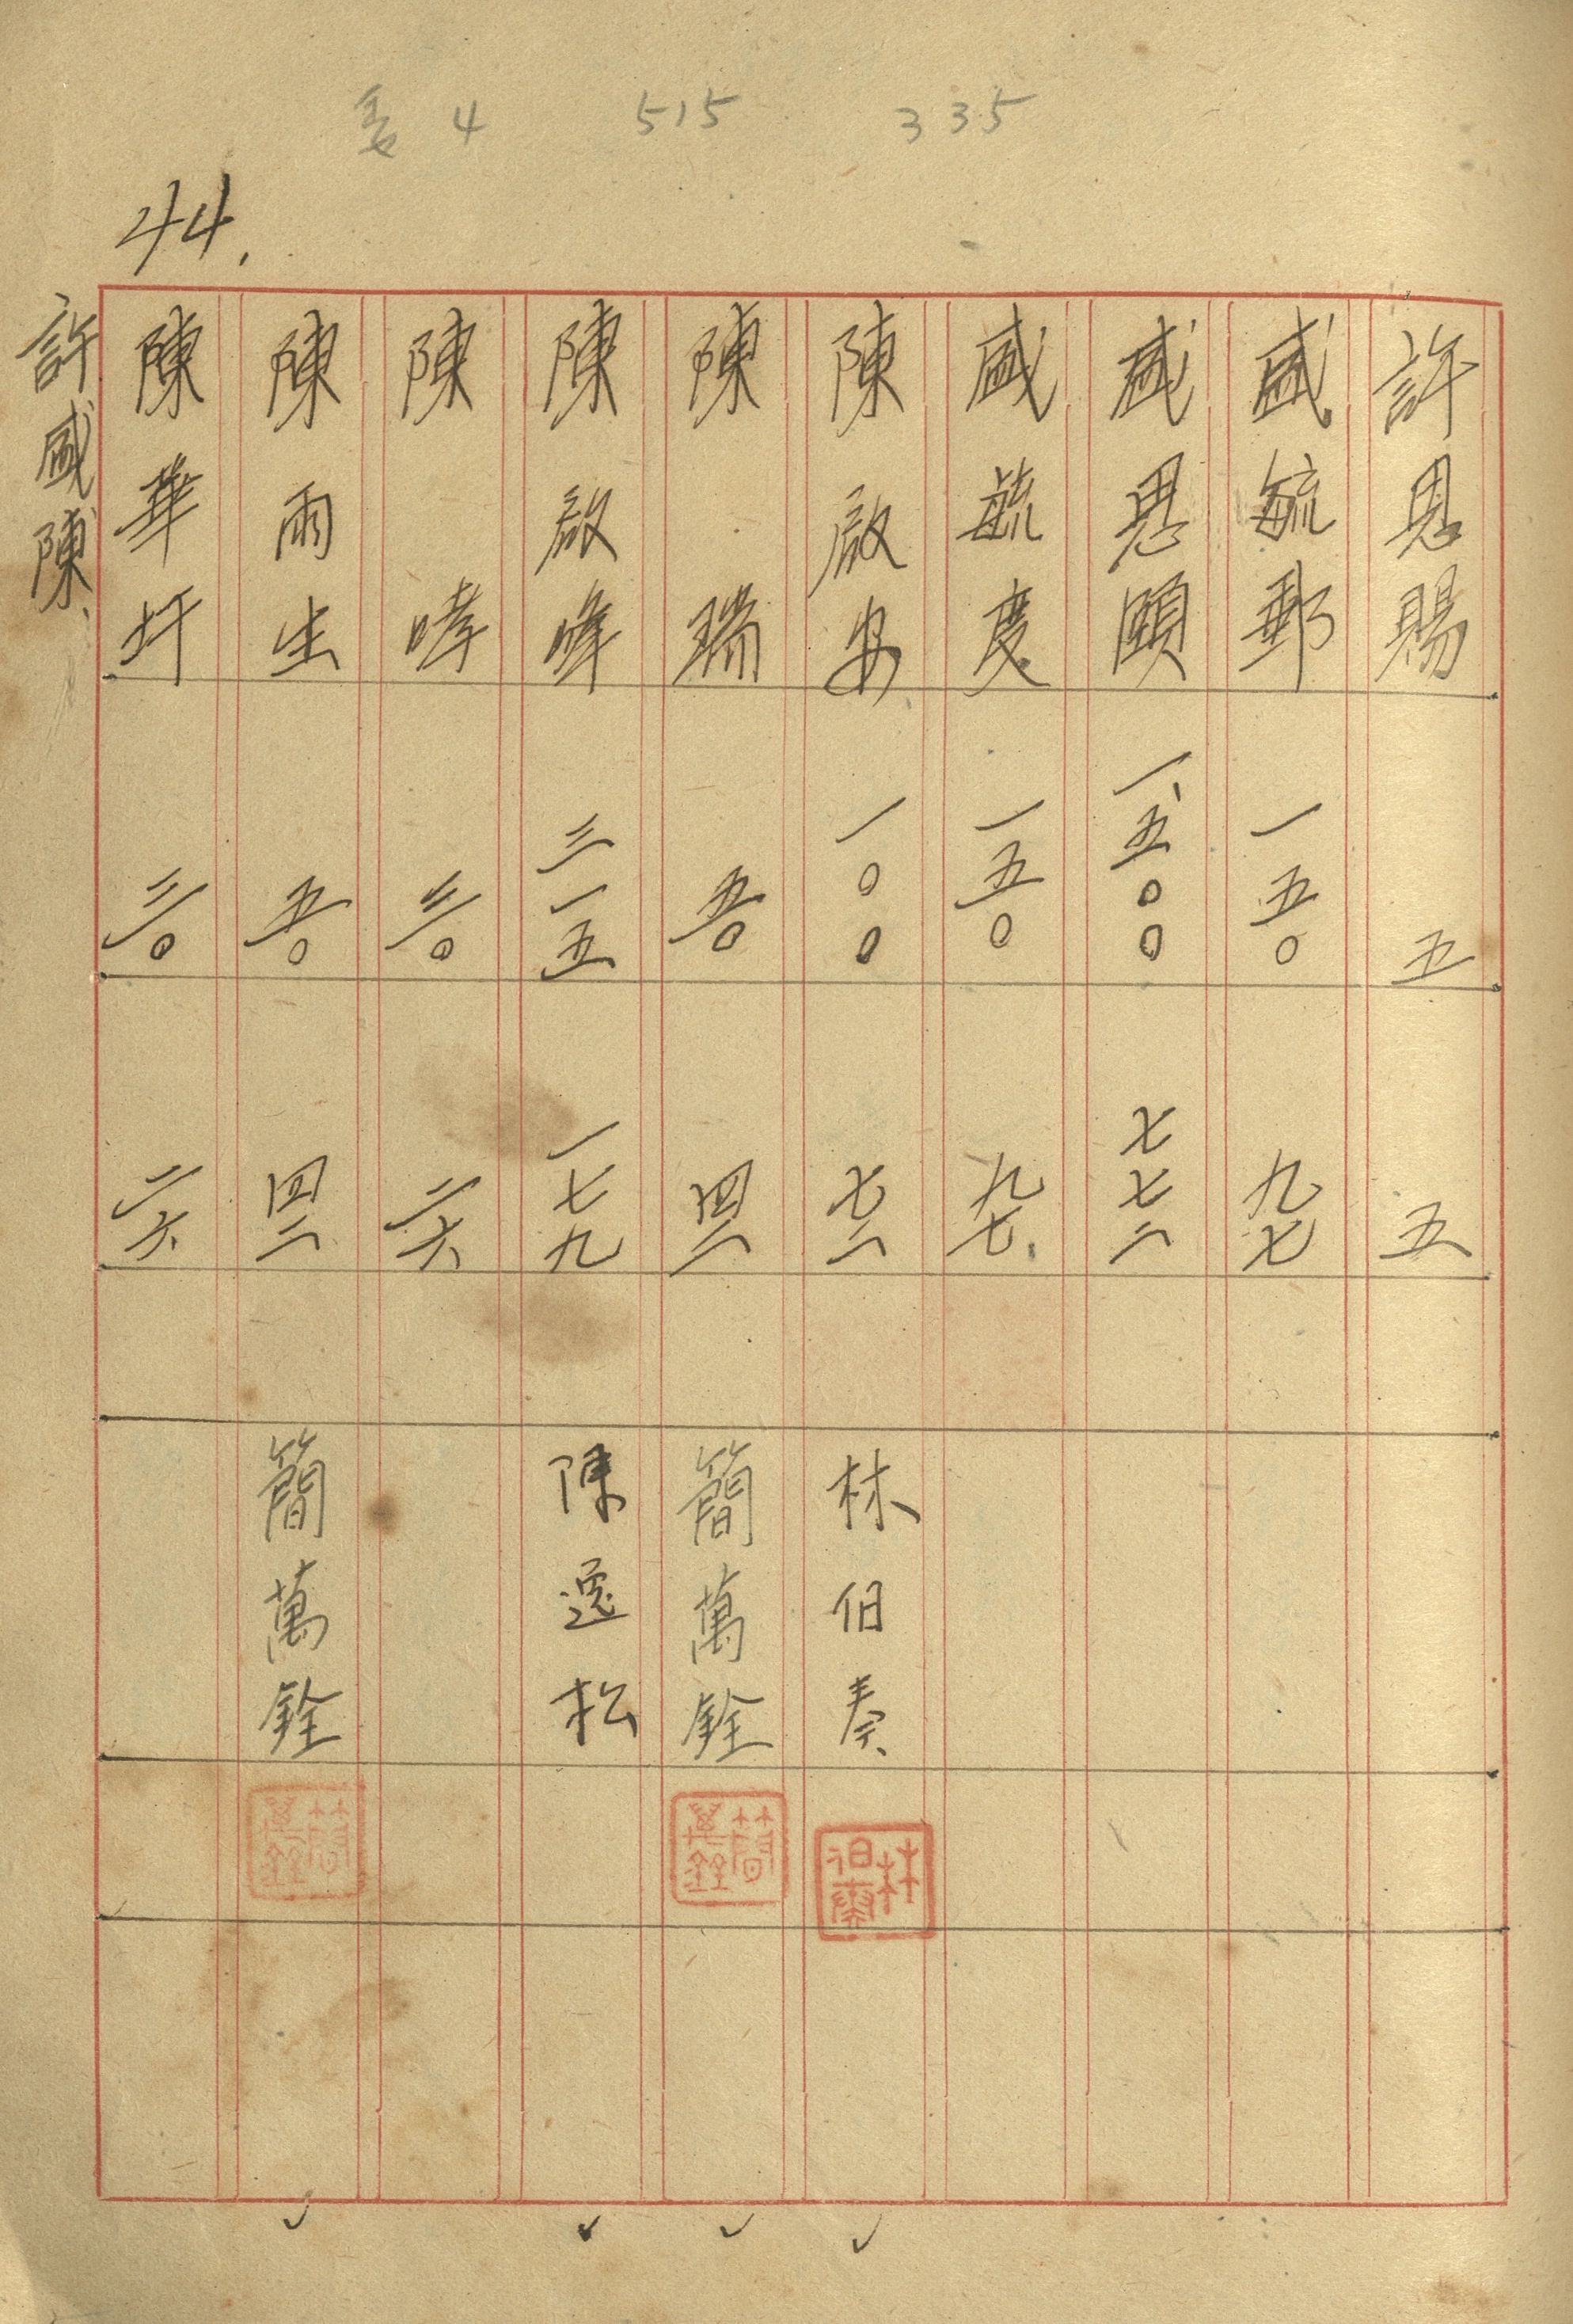 4 515 335
44.
許恩賜 五 五
盛毓郵 一五〇 九七
盛恩頤 一、五〇〇 七七二
盛毓度 一五〇 九七
陳啟安 一〇〇 七二 林伯奏 林伯奏
陳瑞 五〇 四二 簡萬銓 簡萬銓
陳啟峰 三一五 一七九 陳逸松
陳哮 三〇 二六
陳雨生 五〇 四二 簡萬銓 簡萬銓
陳華圩 三〇 二六
許盛陳